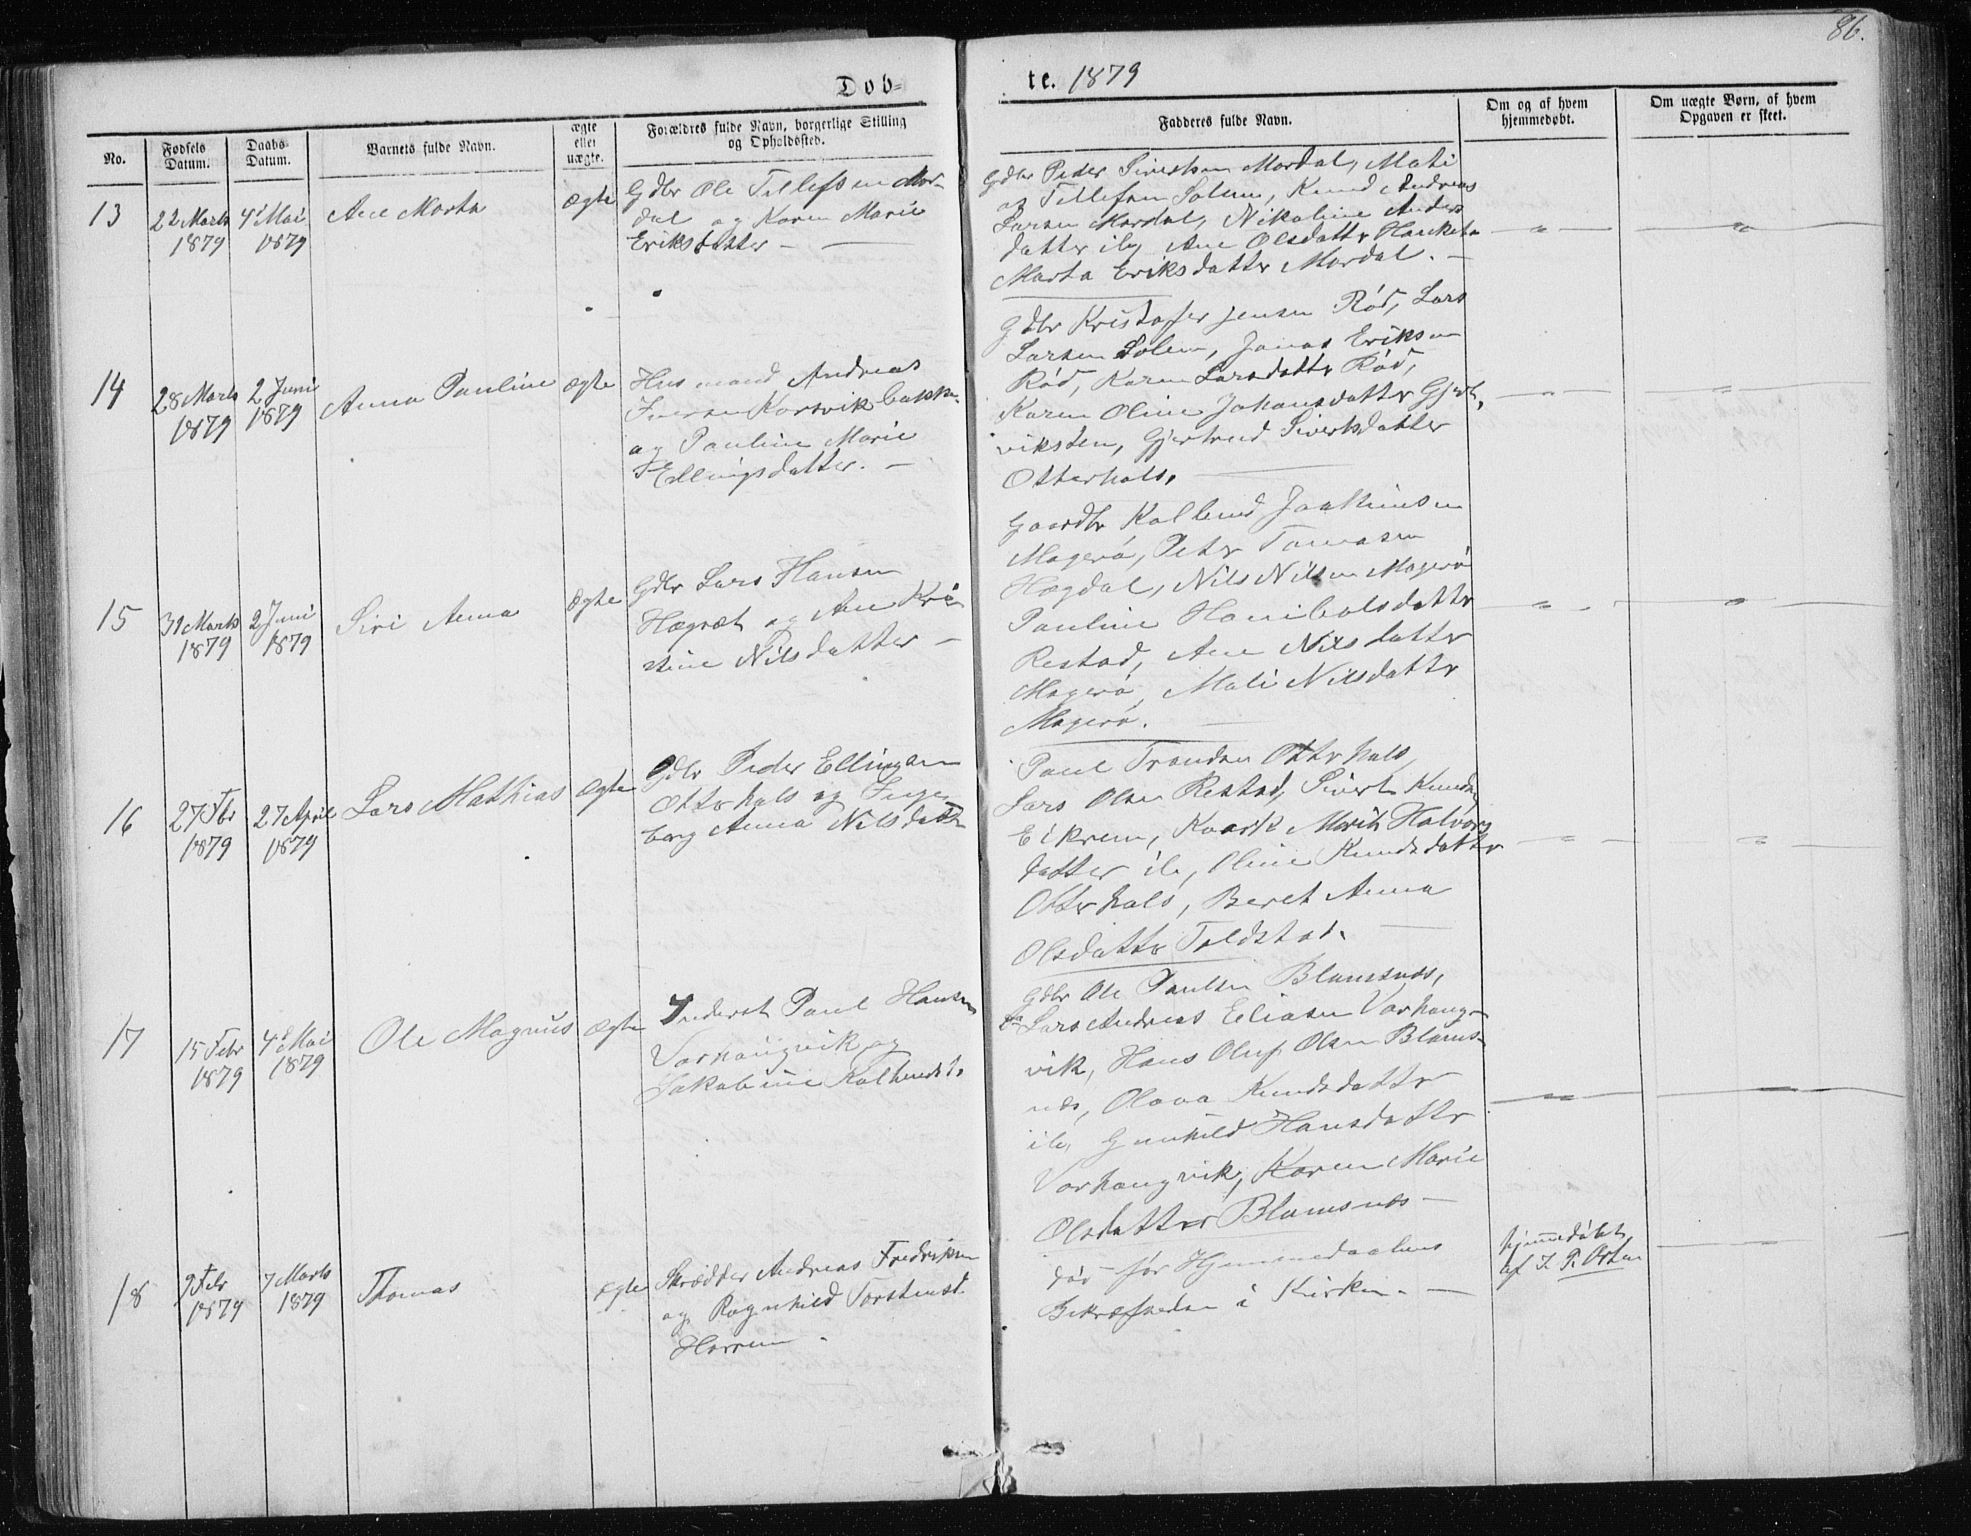 86.
Døb- te. 1879
No.
Fødsels Datum.
Daabs Datum.
Barnets fulde Navn.
ægte eller uægte.
Forældres fulde Navn, borgerlige Stilling og Opholdssted.
Fadderes fulde Navn.
Om og af hvem hjemmedøbt.
Om uægte Børn, af hvem Opgaven er skeet.
13
22 Marts 1879
4' Mai 1879
Ane Marta
Ægte
Gdbr Ole Tellefsen Mor-
dal og Karen Marie
Eriksdatter —
Gdbr Peder Sivertsen Mordal, Mati
as Tellefsen Solem, Knud Andreas
Larsen Mordal, Nikoline Anders
datter ib, Ane Olsdattr
Marta Eriksdattr Mordal. —
14
28 Marts 1879
2 Juni 1879
Anna Pauline
Ægte
Husmand Andreas
Iversen Korsvik
og Pauline Marie
Ellingsdatter. —
Gdbr Kristofer Jensen Rød, Lars
Larsen Solem, Jonas Eriksen
Rød, Karen Larsdattr Rød,
Karen Oline Johansdatter
viksten, Gjertrud Sivertsdatter
Otterhals.
15
31 Marts 1879
2 Juni 1879
Siri Anna
Ægte
Gdbr Lars Hansen
Hægræt og Ane Kri
stine Nilsdatter —
Gaardbr Kollend Joakimsen
Magerø, Peter Tomasen
Hægdal, Nils Nilsen Magerø
Pauline Hanibalsdattr
Restad, Ane Nilsdattr
Magerø, Mali Nilsdattr
Magerø.
16
27 Fbr 1879
27 April 1879
Lars Mathias
Ægte
Gdbr Peder Ellingsen
Otterhals og Inge
borg Anna Nilsdattr
Paul Trondsen Otterhals
Lars Olsen Restad, Sivert Knudsen
Eikrem, Marit Halvors
datter ib, Oline Knudsdatter
Otterhals, Beret Anna
Olsdattr Toldstad.
17
15 Febr 1879
4' Mai 1879
Ole Magnus
Ægte
Inderst Paul Hansen
Varhaugvik og
Jakobine Kolbensd.
Gdbr Ole Paulsen Blamsnæs,
Lars Andreas Eliasen Varhaug-
vik, Hans Oluf Olsen Blams-
næs, Olava Knudsdattr
ib, Gunhild Hansdattr
Varhaugvik, Karen Marie
Olsdatter Blamsnæs —
18
9 Febr 1879
7 Marts 1879
Thomas
Ægte
Skrædder Andreas Fredriksen
og Ragnhild Torstensd.
Harrem
død før Hjemmedaabens
Bekræftedse i Kirken. —
hjemmedøbt
af I. P. Orten